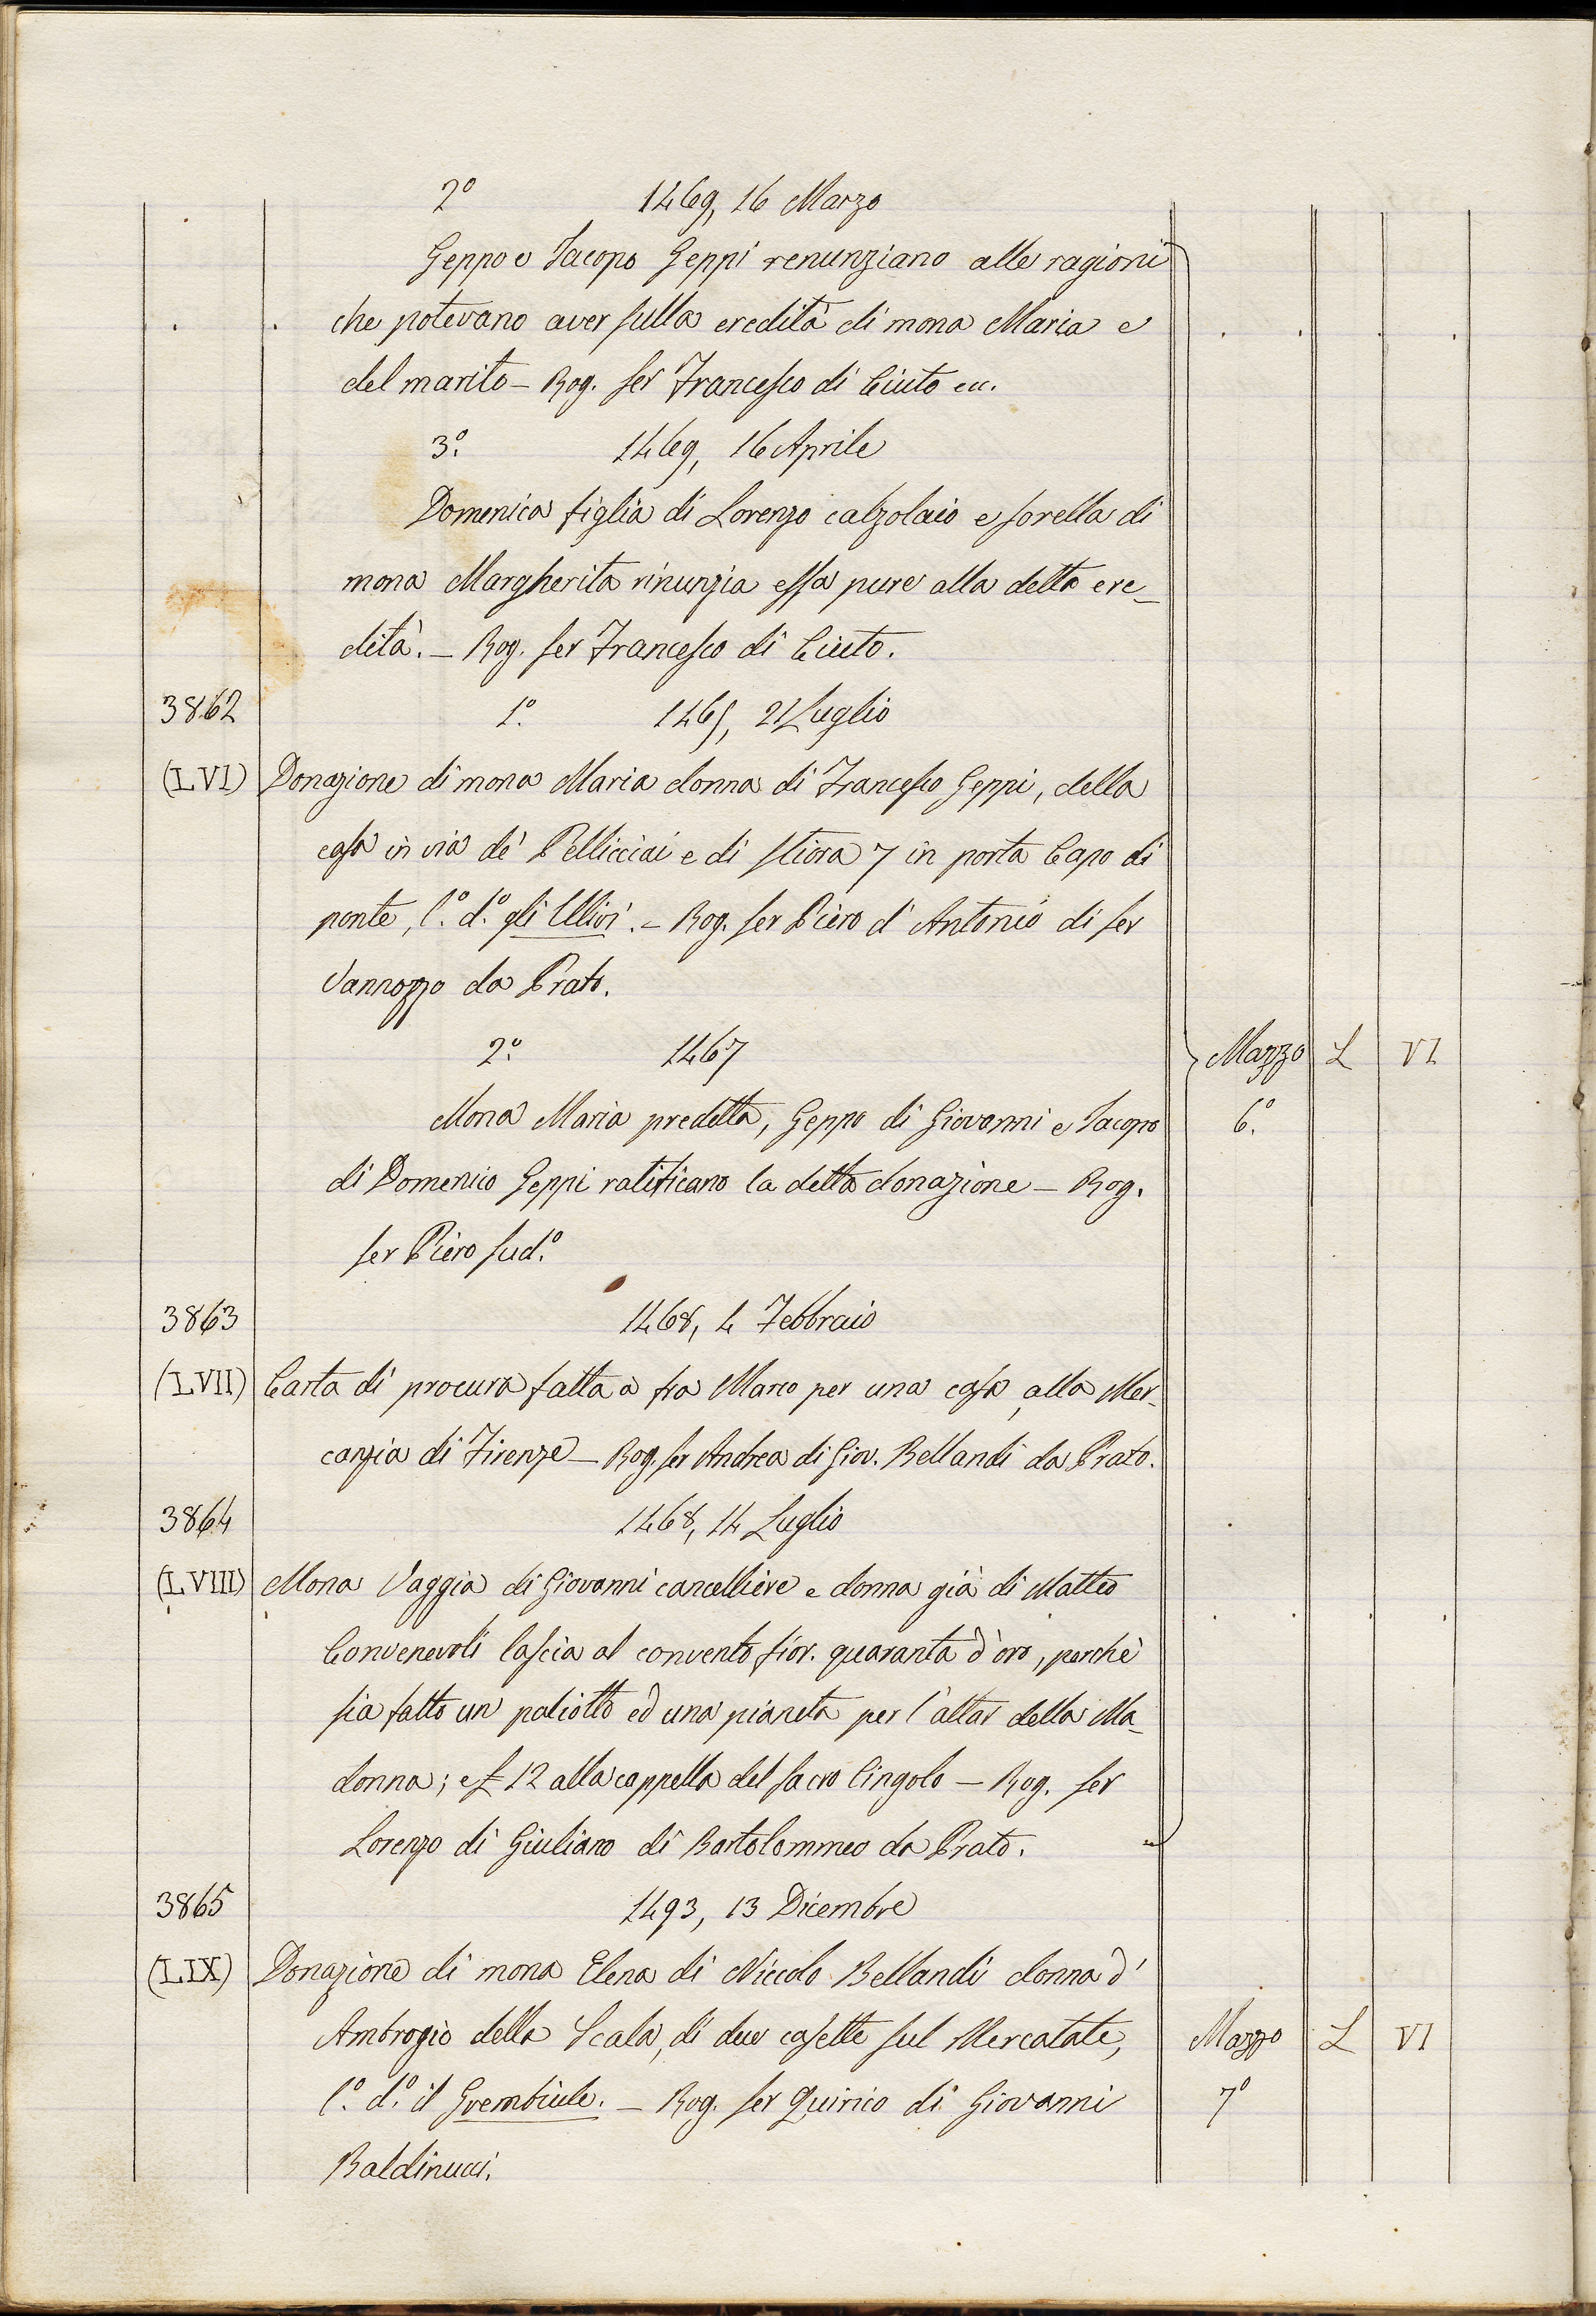 2º 1469, 16 Marzo
Geppo e Jacopo Geppi renunziano alle ragioni
che potevano aver sulla eredità di mona Maria e
del marito – Rog. ser Francesco di Ciuto ec.
3º. 1469, 16 Aprile
Domenica figlia di Lorenzo calzolaio e sorella di
mona Margherita rinunzia essa pure alla detta ere-
dità. – Rog. ser Francesco di Ciuto.
3862 1º. 1465, 21 Luglio
(LVI) Donazione di mona Maria donna di Francesco Geppi, della
casa in via de' Pellicciai e di stiora 7 in porta Capo di
ponte, l.º d.º gli Ulivi. – Rog. ser Piero d'Antonio di ser
Vannozzo da Prato.
2º. 1467 Mazzo L VI
Mona Maria predetta, Geppo di Giovanni e Jacopo 6º.
di Domenico Geppi ratificano la detta donazione – Rog.
ser Piero sud.º
3863 1468, 4 Febbraio
(LVII) Carta di procura fatta a fra Marco per una casa, alla Mer-
canzia di Firenze – Rog. ser Andrea di Giov. Bellandi da Prato.
3864 1468, 14 Luglio
(LVIII) Mona Vaggia di Giovanni cancelliere e donna già di Matteo
Convenevoli lascia al convento fior. quaranta d'oro, perchè
sia fatto un paliotto ed una pianeta per l'altar della Ma-
donna; e £ 12 alla cappella del sacro Cingolo – Rog. ser
Lorenzo di Giuliano di Bartolommeo da Prato.
3865 1493, 13 Dicembre
(LIX) Donazione di mona Elena di Niccolo Bellandi donna d'
Ambrogio della Scala, di due casette sul Mercatale, Mazzo L VI
l.º d.º il Grembiule. – Rog. ser Quirico di Giovanni 7º
Baldinucci.